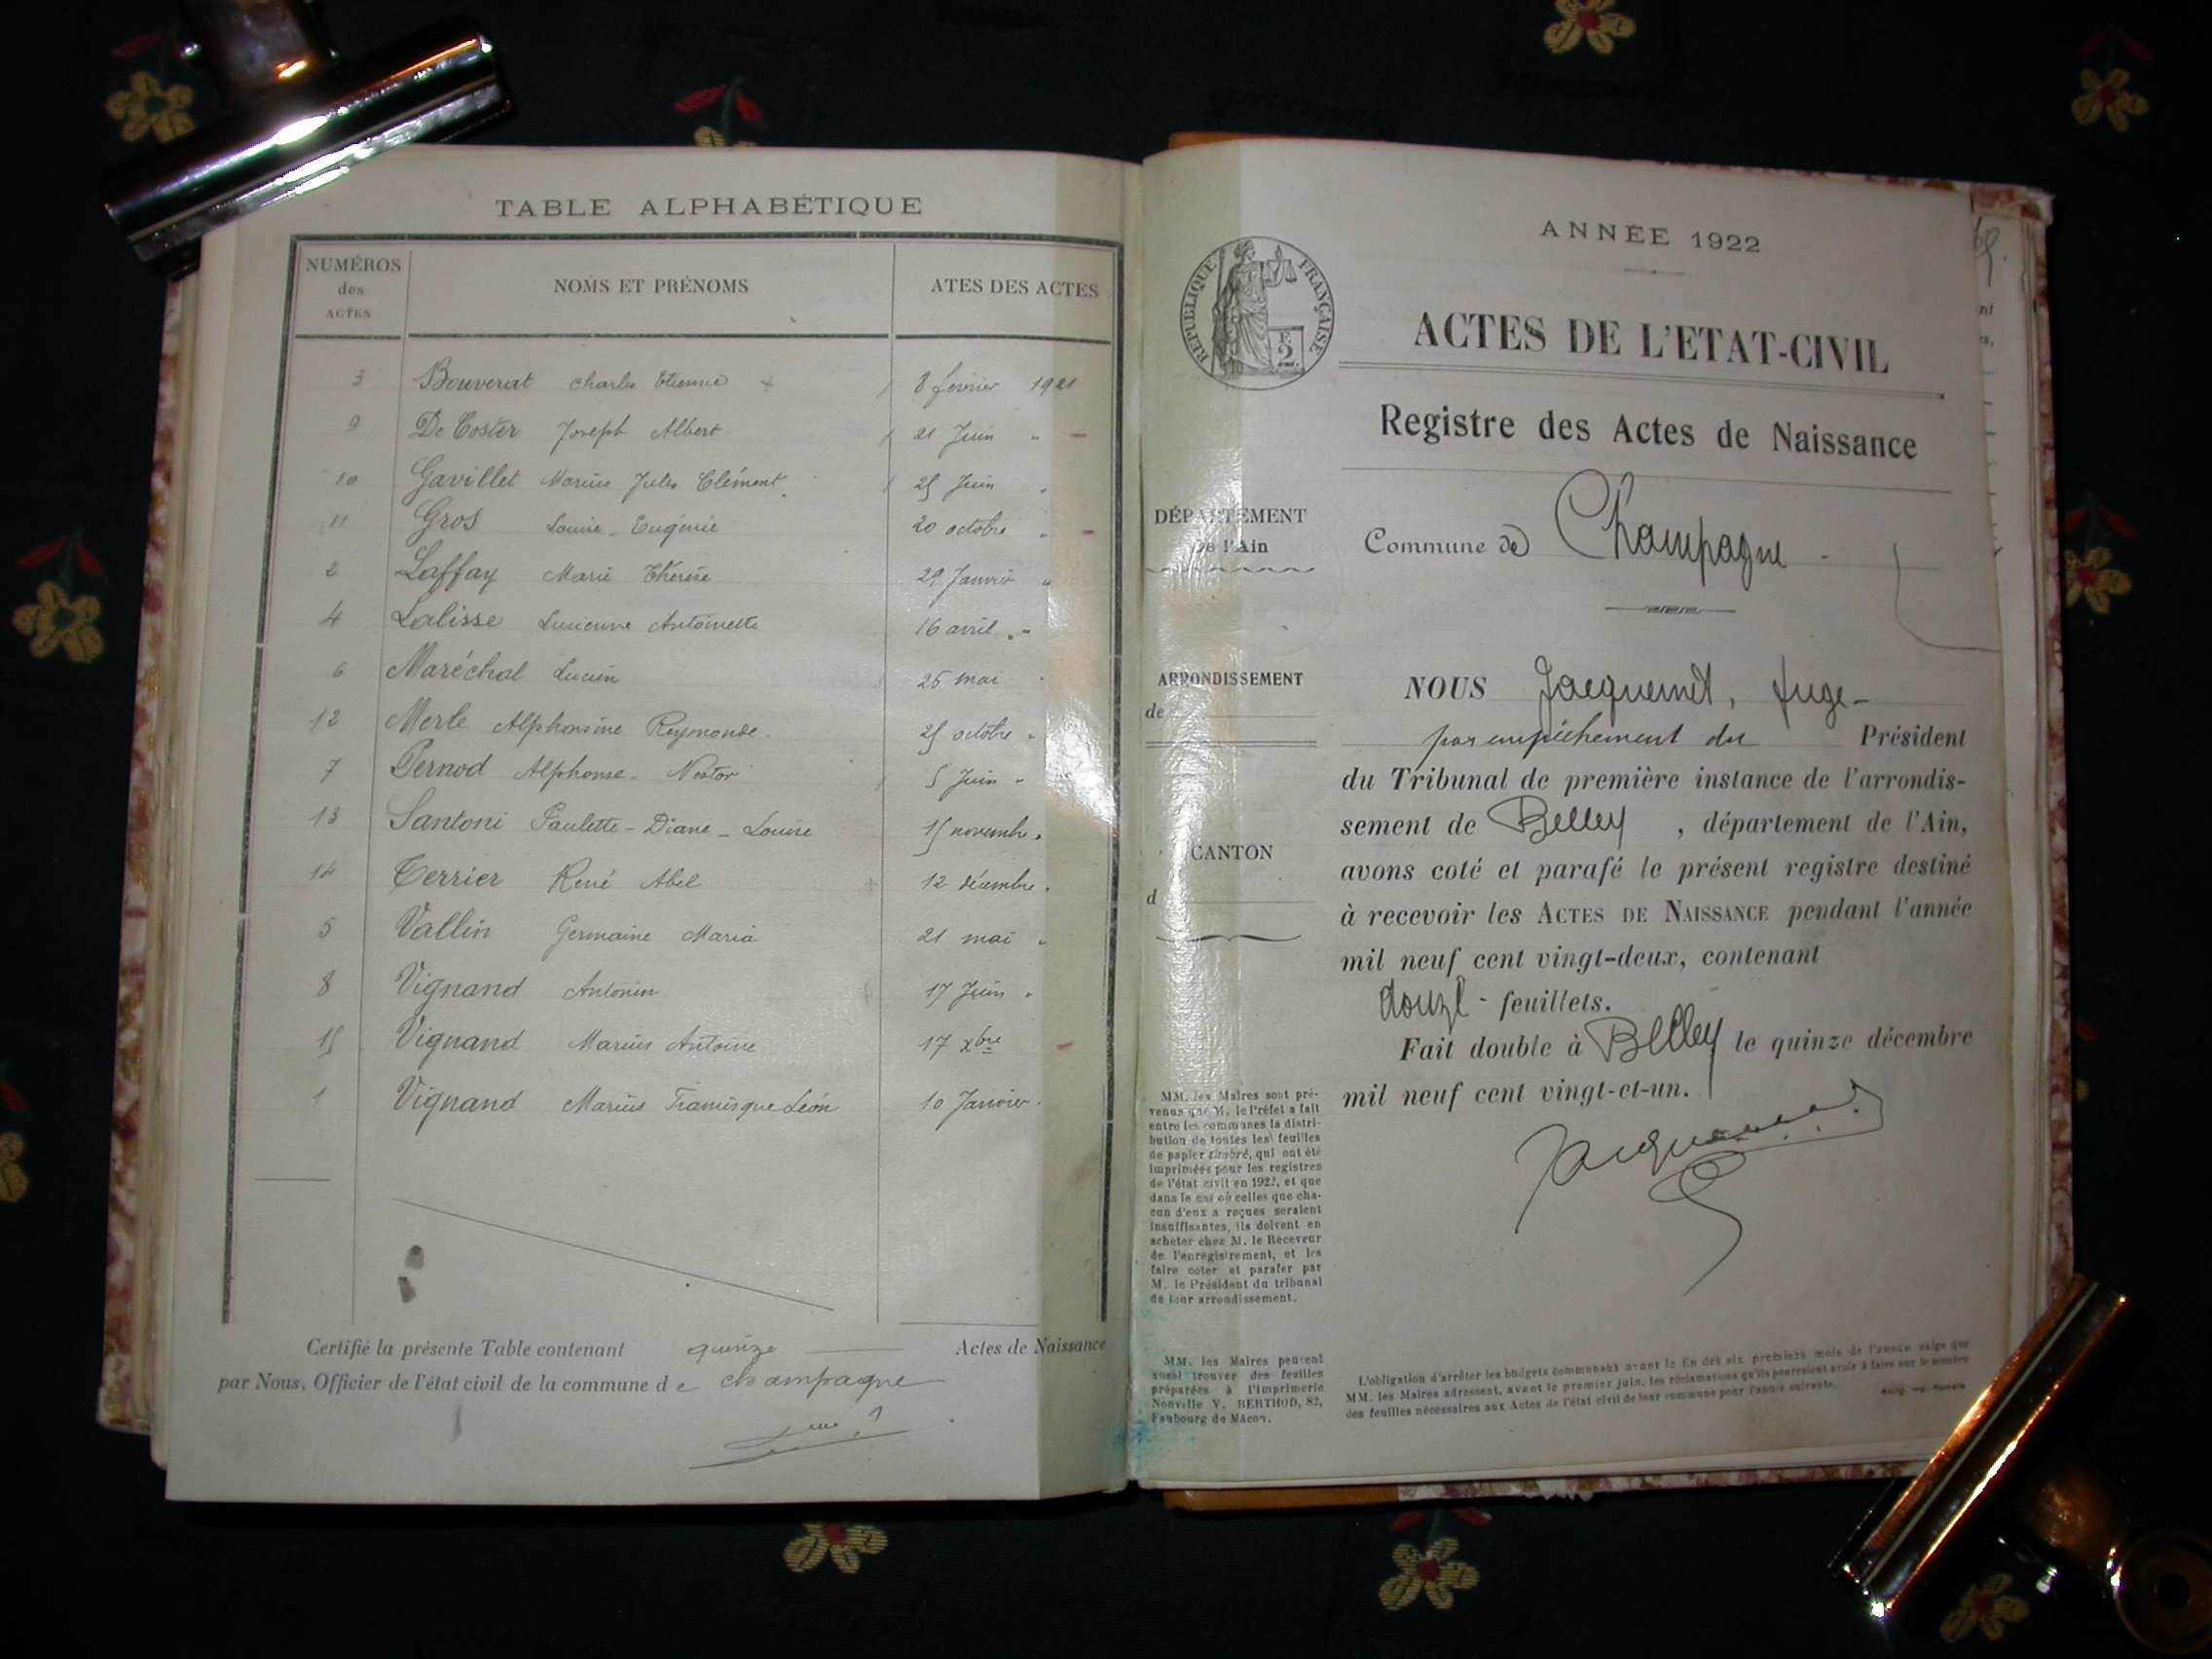 TABLE ALPHABÉTIQUE
NUMÉROS des ACTES NOMS ET PRÉNOMS ATES DES ACTES
3 Bouverat Charles Etienne 8 février 1921
9 De Coster Joseph Albert 21 Juin "
10 Gavillet Marius Jules Clément 25 Juin "
11 Gros Louise - Eugénie 20 octobre "
2 Laffay Marie Thérèse 29 Janvier "
4 Lalisse Lucienne Antoinette 16 avril "
6 Maréchal Lucien 26 mai "
12 Merle Alphonsine Raymonde 25 octobre "
7 Pernod Alphonse - Nestor 5 Juin "
13 Santoni Paulette - Diane - Louise 15 novembre "
14 Terrier René Abel 12 décembre "
5 Vallin Germaine Maria 21 mai "
8 Vignand Antonin 17 Juin "
15 Vignand Marius Antoine 17 xbre
1 Vignand Marius François Léon 10 Janvier
Certifié la présente Table contenant quinze Actes de Naissance
par Nous, Officier de l'état civil de la commune de Champagne
ANNÉE 1922
RÉPUBLIQUE FRANÇAISE
2
ACTES DE L'ETAT-CIVIL
Registre des Actes de Naissance
DÉPARTEMENT
de l'Ain
Commune de Champagne
ARRONDISSEMENT
de
CANTON
d
NOUS Jacquemet, Juge
par empêchement du Président
du Tribunal de première instance de l'arrondis-
sement de Belley, département de l'Ain,
avons coté et parafé le présent registre destiné
à recevoir les ACTES DE NAISSANCE pendant l'année
mil neuf cent vingt-deux, contenant
douze - feuillets.
Fait double à Belley le quinze décembre
mil neuf cent vingt-et-un.
Jacquemet
MM. les Maires sont pré-
venus que M. le Préfet a fait
entre les communes la distri-
bution de toutes les feuilles
de papier timbré, qui ont été
imprimées pour les registres
de l'état civil en 1922, et que
dans le cas où celles que cha-
cun d'eux a reçues seraient
insuffisantes, ils doivent en
acheter chez M. le Receveur
de l'enregistrement, et les
faire coter et parafer par
M. le Président du tribunal
de leur arrondissement.
MM. les Maires peuvent
aussi trouver des feuilles
préparées à l'Imprimerie
Nouvelle V. BERTHOD, 82,
Faubourg de Mâcon.
L'obligation d'arrêter les budgets communaux avant la fin des six premiers mois de l'année exige que
MM. les Maires adressent, avant le premier juin, les réclamations qu'ils pourraient avoir à faire sur le nombre
des feuilles nécessaires aux Actes de l'état civil de leur commune pour l'année suivante.